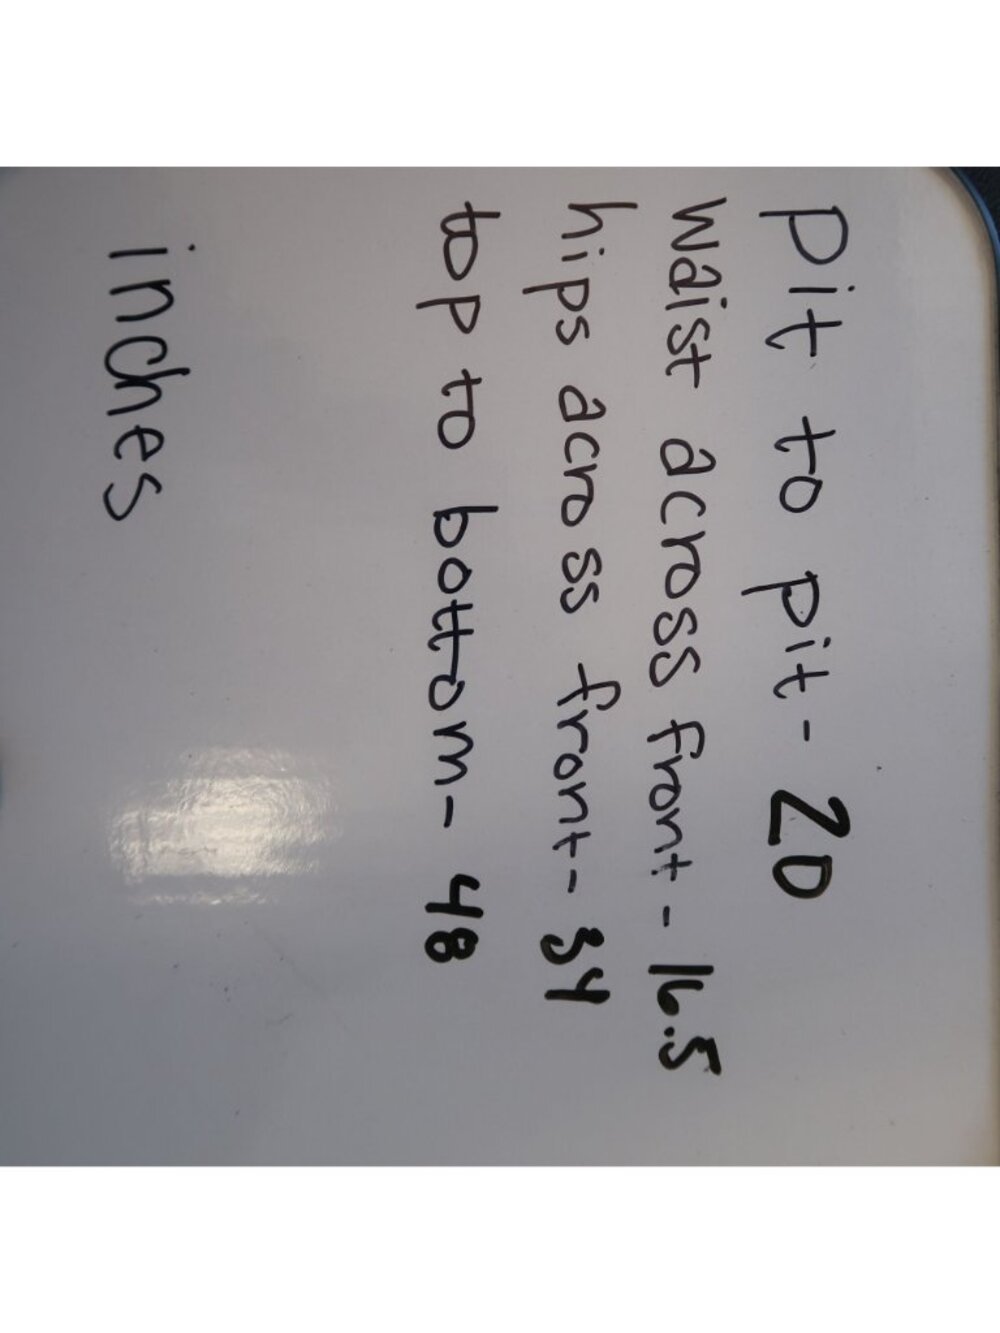 pit to pit - 20
waist across front - 16.5
hips across front - 34
top to bottom - 48
inches